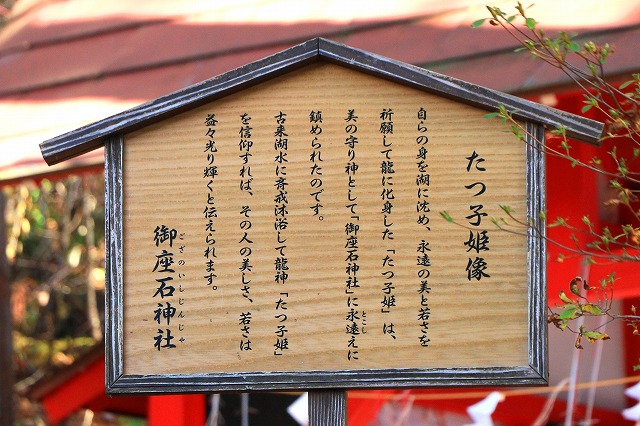 たつ子姫像
自らの身を湖に沈め、永遠の美と若さを
祈願して龍に化身した「たつ子姫」は、
美の守り神として「御座石神社」に永遠えに
とこし
鎮められたのです。
古来湖水に斉戒沐浴して龍神「たつ子姫」
を信仰すれば、その人の美しさ、若さは
益々光り輝くと伝えられます。
御座石神社
ござのいしじんじゃ